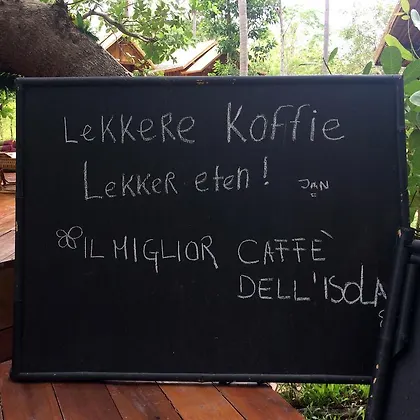 LeKKeRe Koffie
LeKKeR eten! JAN
IL MIGLIOR CAFFÈ
DELL'ISOLA